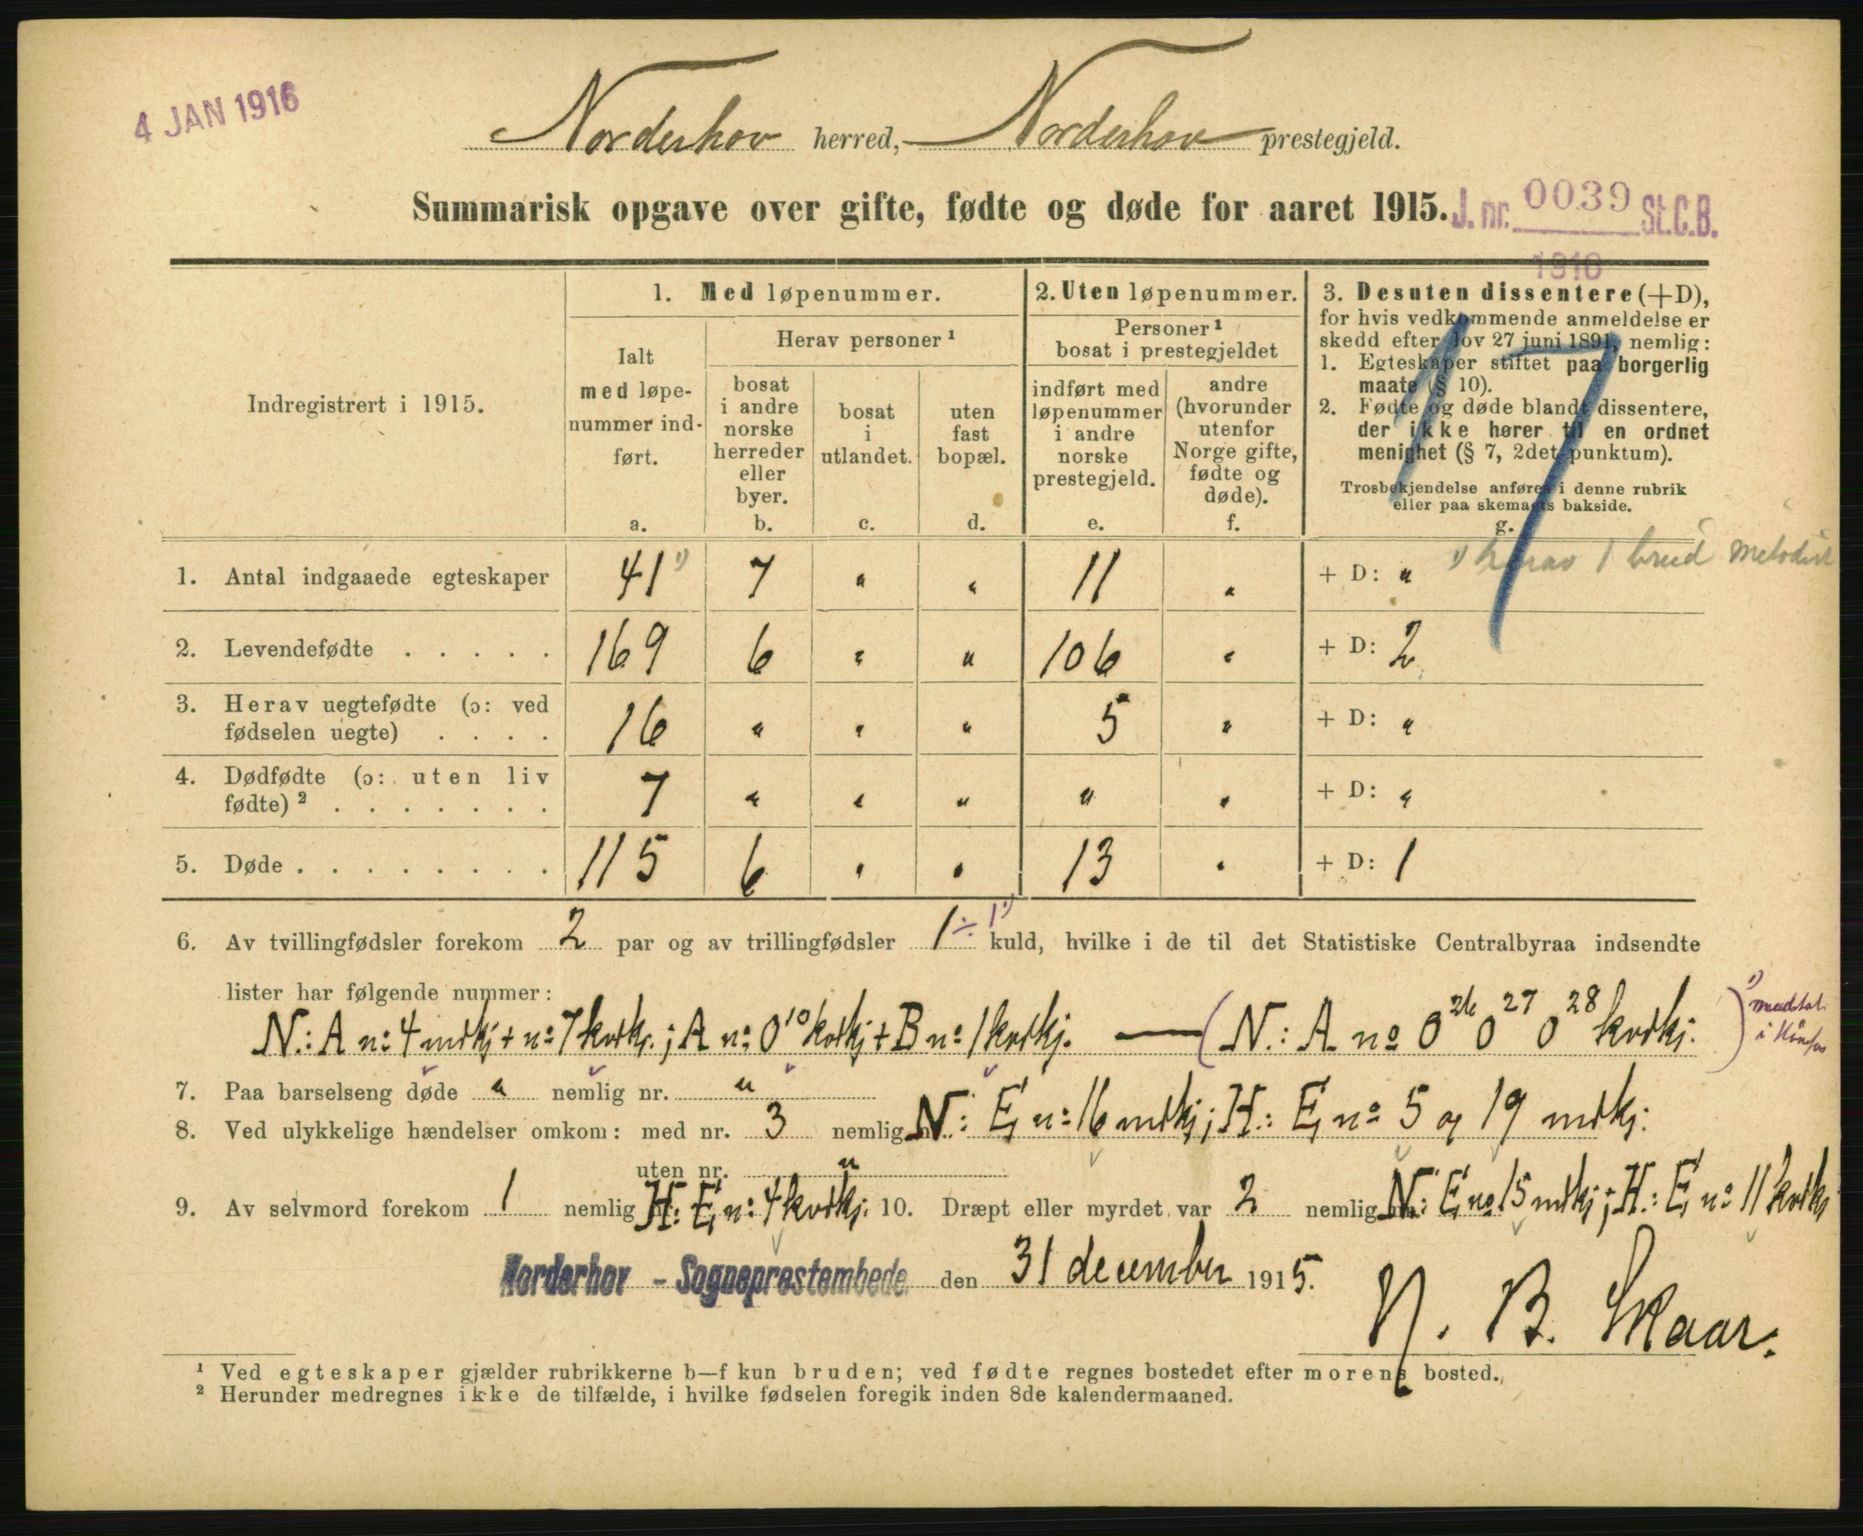 4 JAN 1916
Norderhov herred, Norderhov prestegjeld.
Summarisk opgave over gifte, fødte og døde for aaret 1915.
J. nr. 0039 St.C.B.
1916
Indregistrert i 1915.
1. Med løpenummer.
Ialt
med løpe-
nummer ind-
ført.
a.
Herav personer ¹
bosat
i andre
norske
herreder
eller
byer.
b.
bosat
i
utlandet.
c.
uten
fast
bopæl.
d.
2. Uten løpenummer.
Personer ¹
bosat i prestegjeldet
indført med
løpenummer
i andre
norske
prestegjeld.
e.
andre
(hvorunder
utenfor
Norge gifte,
fødte og
døde).
f.
3. Desuten dissentere (+D),
for hvis vedkommende anmeldelse er
skedd efter lov 27 juni 1891, nemlig:
1. Egteskaper stiftet paa borgerlig
maate (§ 10).
2. Fødte og døde blandt dissentere,
der ikke hører til en ordnet
menighet (§ 7, 2det punktum).
Trosbekjendelse anføres i denne rubrik
eller paa skemaets bakside.
g.
17
1. Antal indgaaede egteskaper 41 ¹) 7 " " 11 " + D: " ¹) herav 1 brud metodist
2. Levendefødte . . . . . 169 6 " " 106 " + D: 2
3. Herav uegtefødte (ɔ: ved
fødselen uegte) . . . . 16 " " " 5 " + D: "
4. Dødfødte (ɔ: uten liv
fødte) ² . . . . . . . 7 " " " " " + D: "
5. Døde . . . . . . . . 115 6 " " 13 " + D: 1
6. Av tvillingfødsler forekom 2 par og av trillingfødsler 1 ÷ 1 ¹) kuld, hvilke i de til det Statistiske Centralbyraa indsendte
lister har følgende nummer:
N.: A no 4 mdkj + no 7 kvdkj.; A no 0¹⁰ kvdkj + B no 1 kvdkj. — (N.: A no 0²⁶ 0²⁷ 0²⁸ kvdkj.)
¹) medtat
i
7. Paa barselseng døde " nemlig nr. "
8. Ved ulykkelige hændelser omkom: med nr. 3 nemlig N.: E no 16 mdkj; H.: E no 5 og 19 mdkj.
uten nr. "
9. Av selvmord forekom 1 nemlig H: E no 4 kvdkj. 10. Dræpt eller myrdet var 2 nemlig N: E no 15 mdkj; H.: E no 11 kvdkj
Norderhov - Sogneprestembede den 31 december 1915.
N. B. Skaar.
¹ Ved egteskaper gjælder rubrikkerne b—f kun bruden; ved fødte regnes bostedet efter morens bosted.
² Herunder medregnes ikke de tilfælde, i hvilke fødselen foregik inden 8de kalendermaaned.